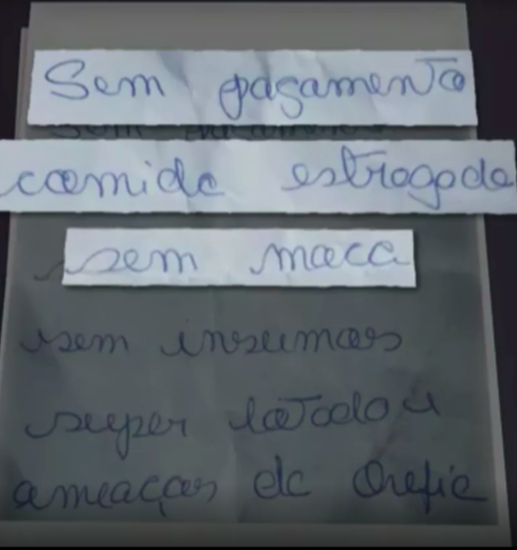 Sem pagamento
comida estragada
sem maca
sem insumos
super lotado
ameaças do chefe